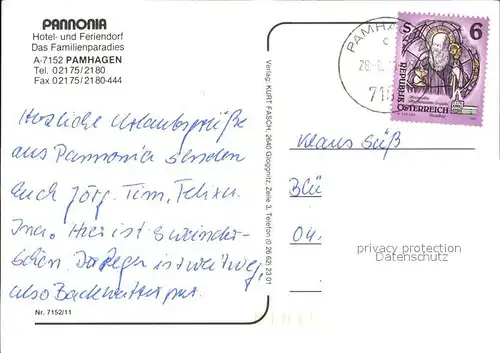 PANNONIA
Hotel- und Feriendorf
Das Familienparadies
A-7152 PAMHAGEN
Tel. 02175/2180
Fax 02175/2180-444
Herzliche Urlaubsgrüße
aus Pannonia senden
Euch Jörg, Tim, Felix u.
Ina. Hier ist es wunder-
schön. Der Regen ist weit weg,
also Badewetter pur.
Nr. 7152/11
Verlag: KURT FASCH, 2640 Gloggnitz, Zeile 3, Telefon (0 26 62) 23 01
PAMHA
715
S 6
REPUBLIK
ÖSTERREICH
Klaus Süß
Blü
04.
privacy protection
Datenschutz